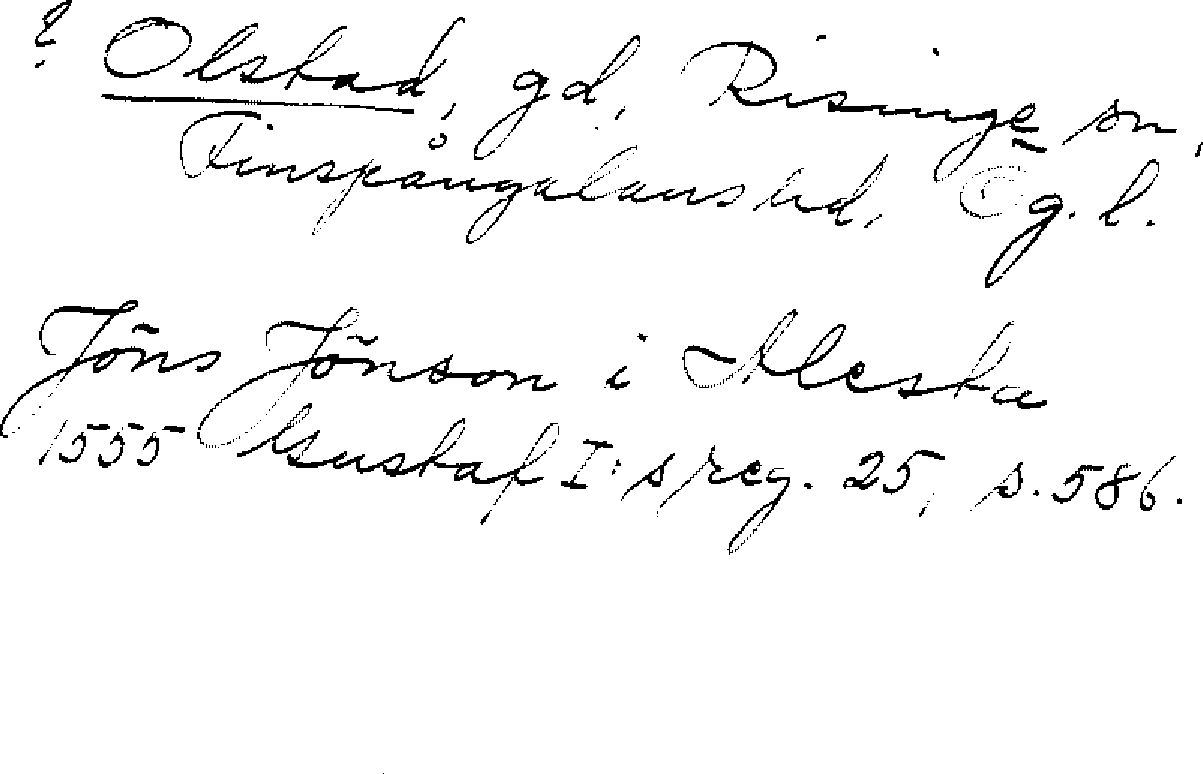 ? Olstad, gd, Risinge sn,
Finspångalans hd, Ög. l.
Jöns Jönson i Alesta
1555 Gustaf I:s reg. 25, s. 586.